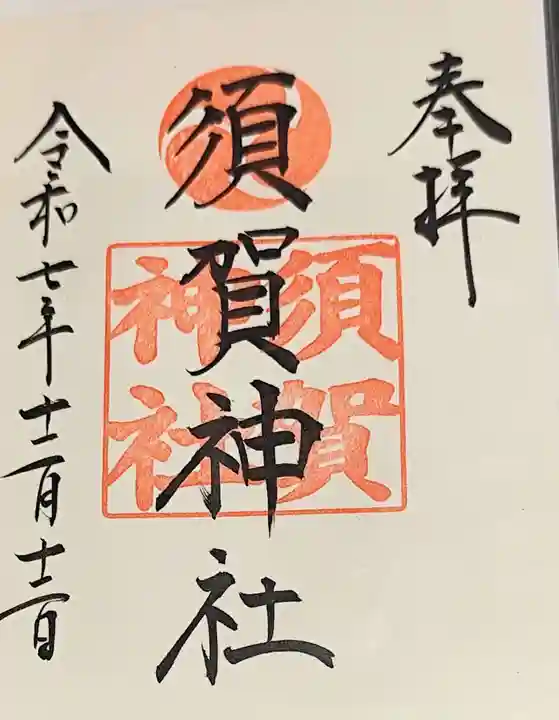 奉拝
須賀神社
須賀
神社
令和七年十二月十三日